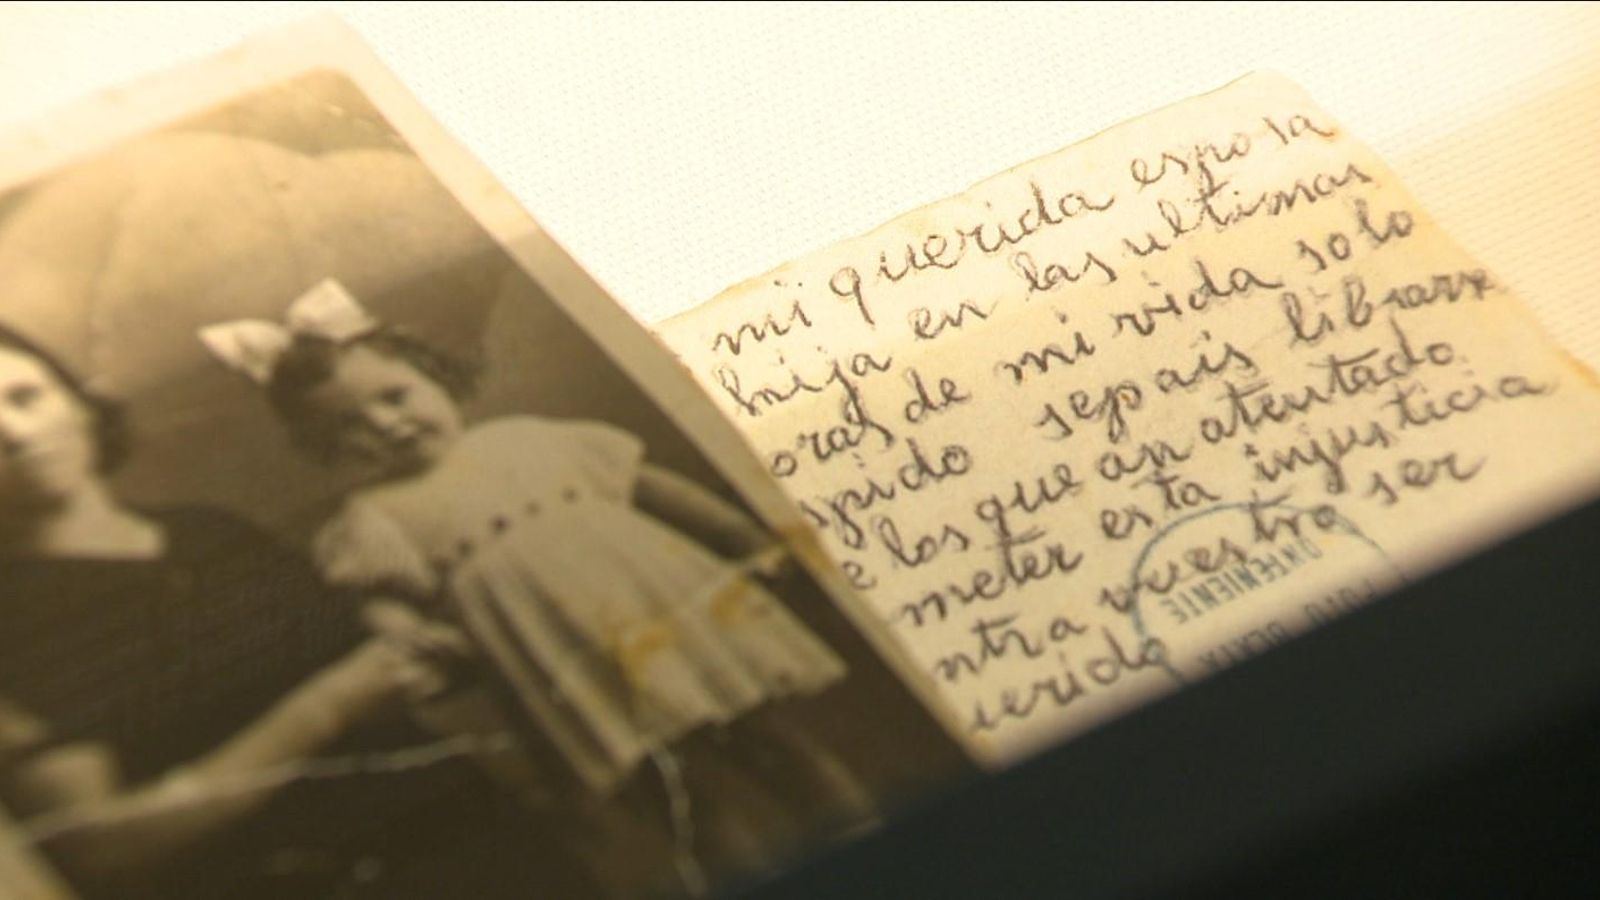 mi querida esposa
hija en las ultimas
oras de mi vida solo
spido sepais librarx
e los que an atentado
meter esta injusticia
ntra vuestro ser
uerido
ONTENIENTE
FOTO